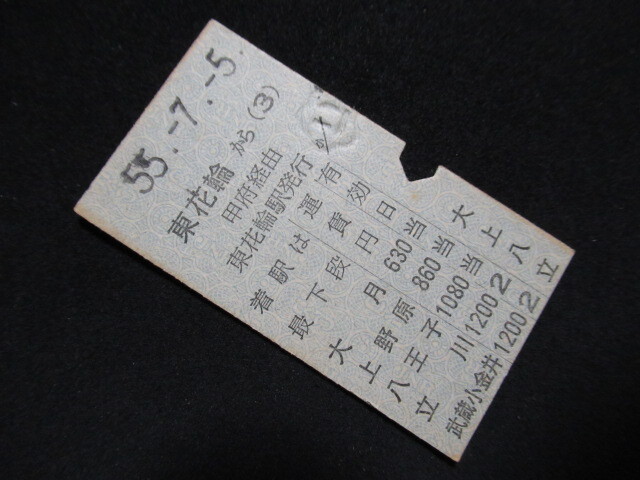 55.-7.-5.
東花輪から(3)
甲府経由
東花輪駅発行
着駅は 運賃 有効
最下段 円 日
大月 630 当 大
上野原 860 当 上
八王子 1080 当 八
立川 1200 2 立
武蔵小金井 1200 2